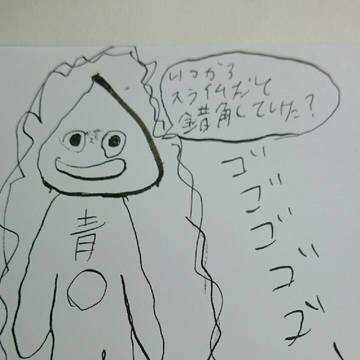 いつから
スライムだと
錯角していた?
ゴゴゴゴゴ
青